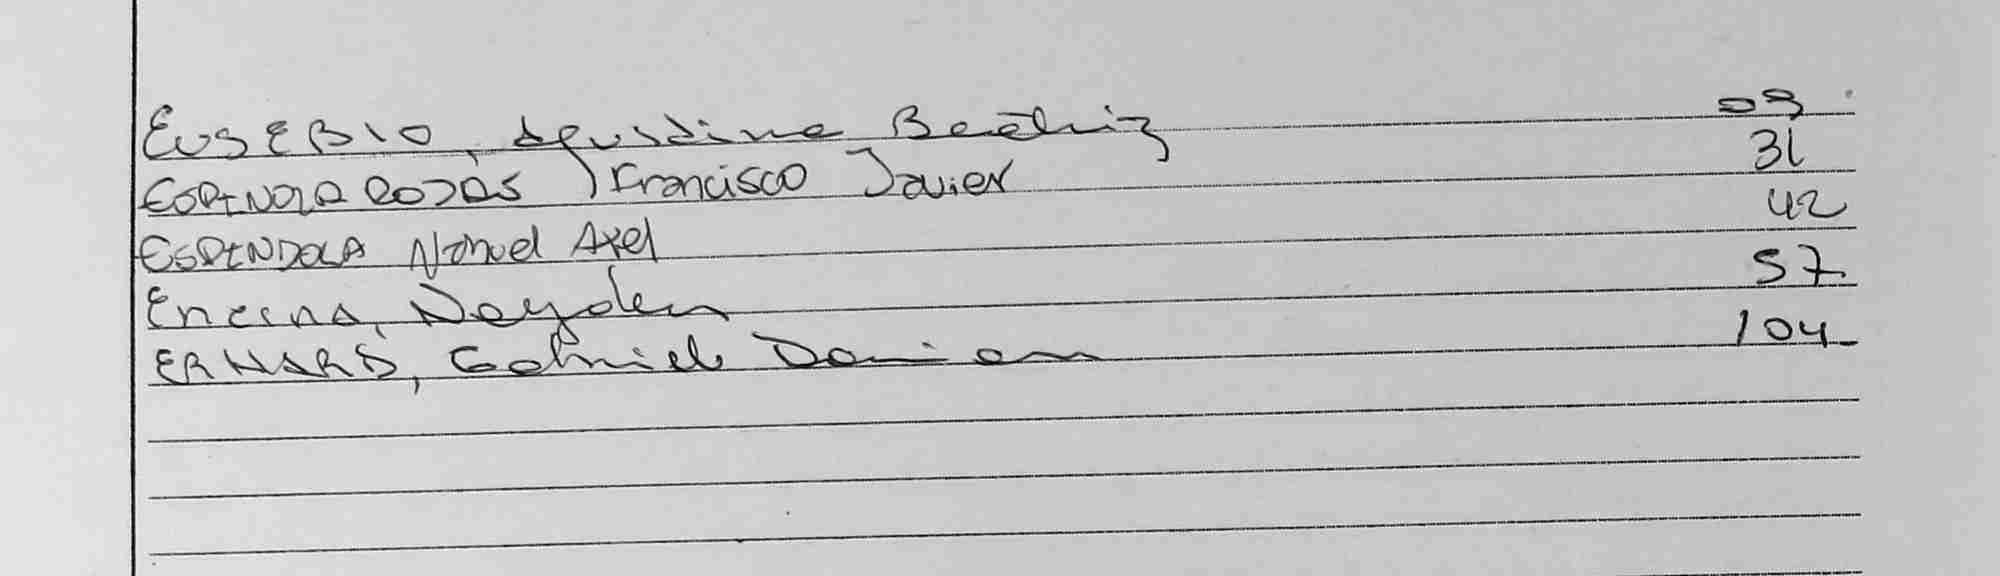 EUSEBIO, Agustina Beatriz 09
ESPINOLA ROJAS, Francisco Javier 31
ESPINDOLA Nahuel Axel 42
Encina, Nayden 57
ERHARD, Gabriel Damian 104